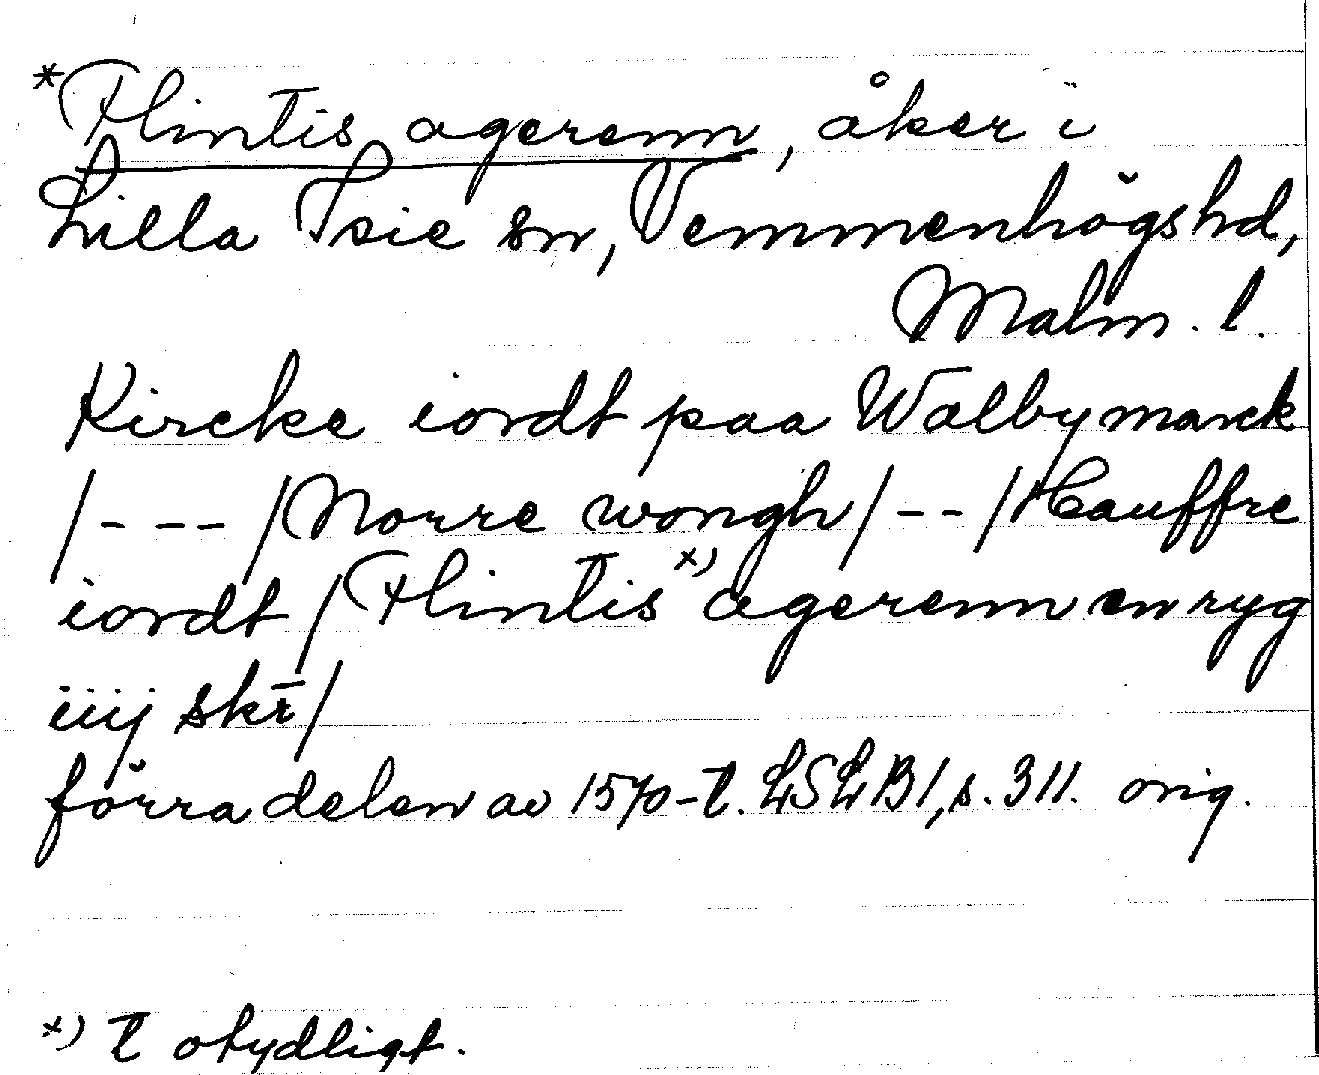 *Flintis agerenn, åker i
Lilla Isie sn, Vemmenhögs hd,
Malm. l.
Kircke iordt paa Walby marck
/- - - /Norre wongh/ - - /Hauffre
iordt / Flintis x) agerenn en ryg
iiij skr̄/
förra delen av 1570-t. LSLB 1, s. 311. orig.
x) t otydligt.